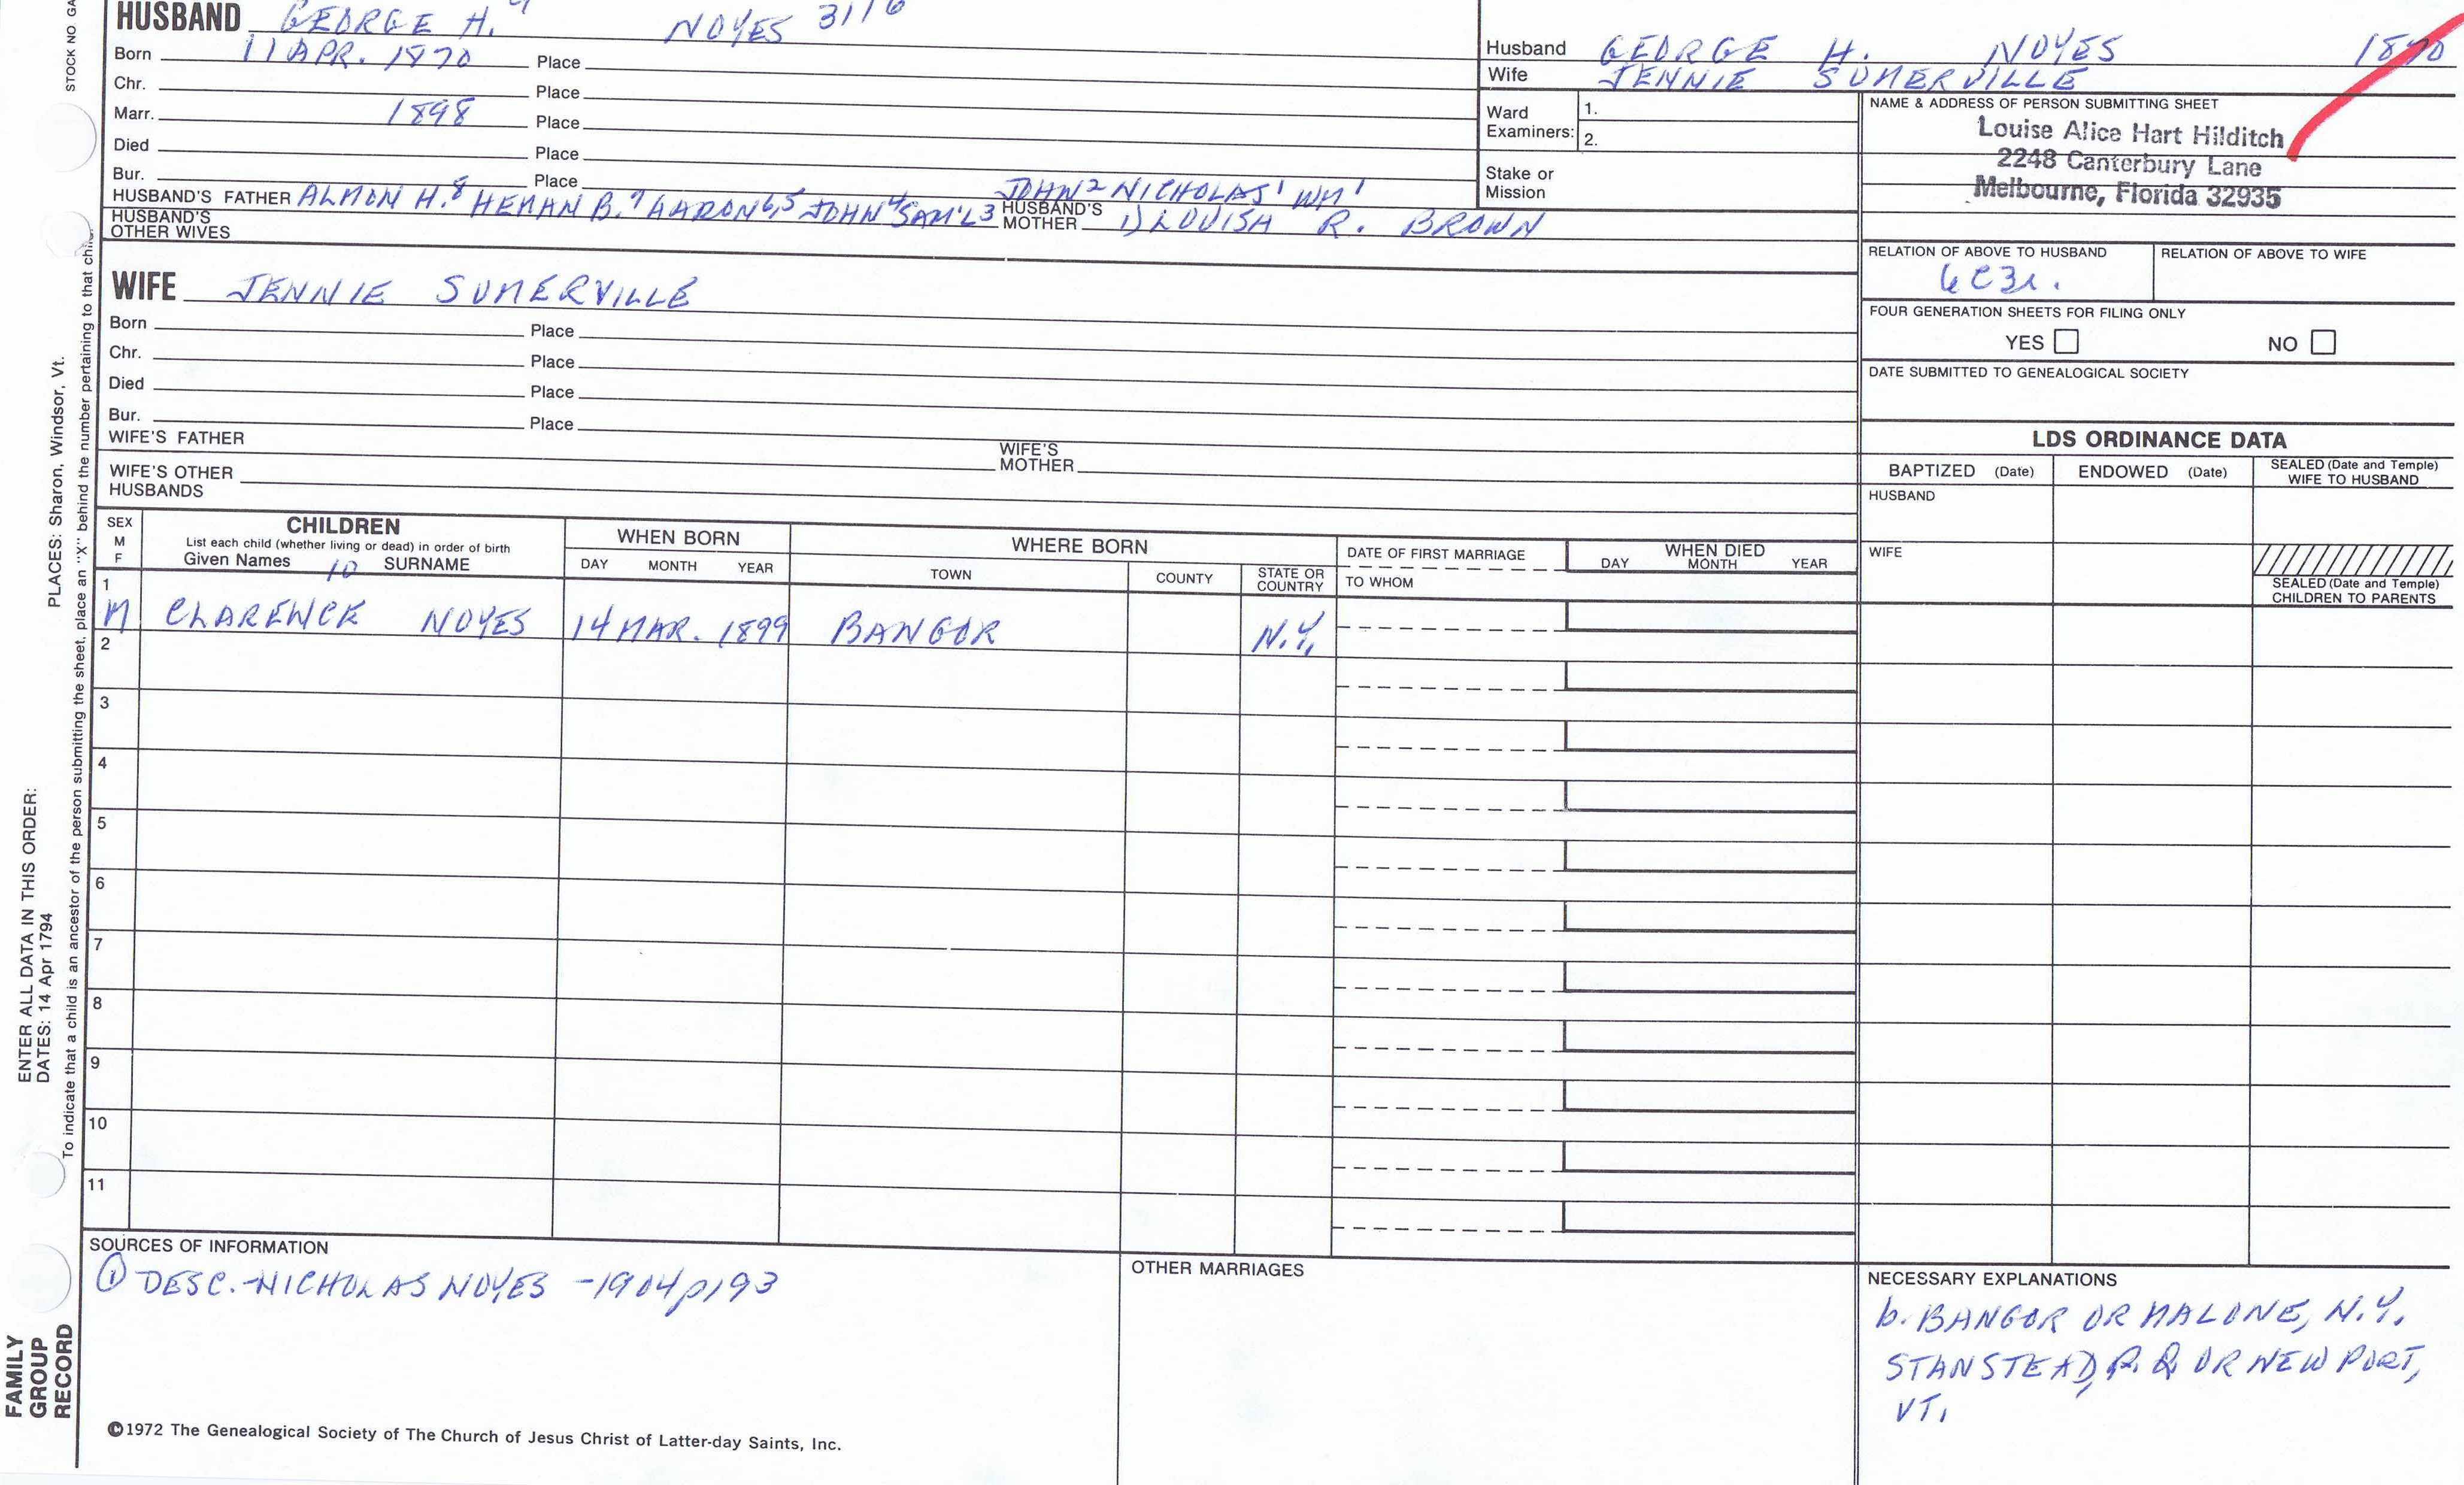 HUSBAND GEORGE H. 9 NOYES 3116
Born 11 APR. 1870 Place
Chr. Place
Marr. 1898 Place
Died Place
Bur. Place
HUSBAND'S FATHER ALMON H.8 HEMAN B.7 AARON6,5 JOHN4 SAM'L3 JOHN2 NICHOLAS1 WM1 HUSBAND'S MOTHER 1) LOUISA R. BROWN
HUSBAND'S OTHER WIVES
WIFE JENNIE SUMERVILLE
Born Place
Chr. Place
Died Place
Bur. Place
WIFE'S FATHER WIFE'S MOTHER
WIFE'S OTHER HUSBANDS
Husband GEORGE H. NOYES 1870
Wife JENNIE SUMERVILLE
Ward Examiners: 1.
2.
Stake or Mission
NAME & ADDRESS OF PERSON SUBMITTING SHEET
Louise Alice Hart Hilditch
2248 Canterbury Lane
Melbourne, Florida 32935
RELATION OF ABOVE TO HUSBAND RELATION OF ABOVE TO WIFE
6C3r.
FOUR GENERATION SHEETS FOR FILING ONLY
YES NO
DATE SUBMITTED TO GENEALOGICAL SOCIETY
LDS ORDINANCE DATA
BAPTIZED (Date) ENDOWED (Date) SEALED (Date and Temple) WIFE TO HUSBAND
HUSBAND
WIFE
SEALED (Date and Temple)
CHILDREN TO PARENTS
SEX M F
CHILDREN
List each child (whether living or dead) in order of birth
Given Names 10 SURNAME
WHEN BORN
DAY MONTH YEAR
WHERE BORN
TOWN COUNTY STATE OR COUNTRY
DATE OF FIRST MARRIAGE
TO WHOM
WHEN DIED
DAY MONTH YEAR
1
M CLARENCE NOYES 14 MAR. 1899 BANGOR N.Y.
2
3
4
5
6
7
8
9
10
11
SOURCES OF INFORMATION
① DESC.-NICHOLAS NOYES -1904 p193
OTHER MARRIAGES
NECESSARY EXPLANATIONS
b. BANGOR OR MALONE, N.Y.
STANSTEAD, P.Q. OR NEWPORT,
VT.
©1972 The Genealogical Society of The Church of Jesus Christ of Latter-day Saints, Inc.
STOCK NO GA
PLACES: Sharon, Windsor, Vt.
ENTER ALL DATA IN THIS ORDER:
DATES: 14 Apr 1794
To indicate that a child is an ancestor of the person submitting the sheet, place an "X" behind the number pertaining to that child.
FAMILY
GROUP
RECORD